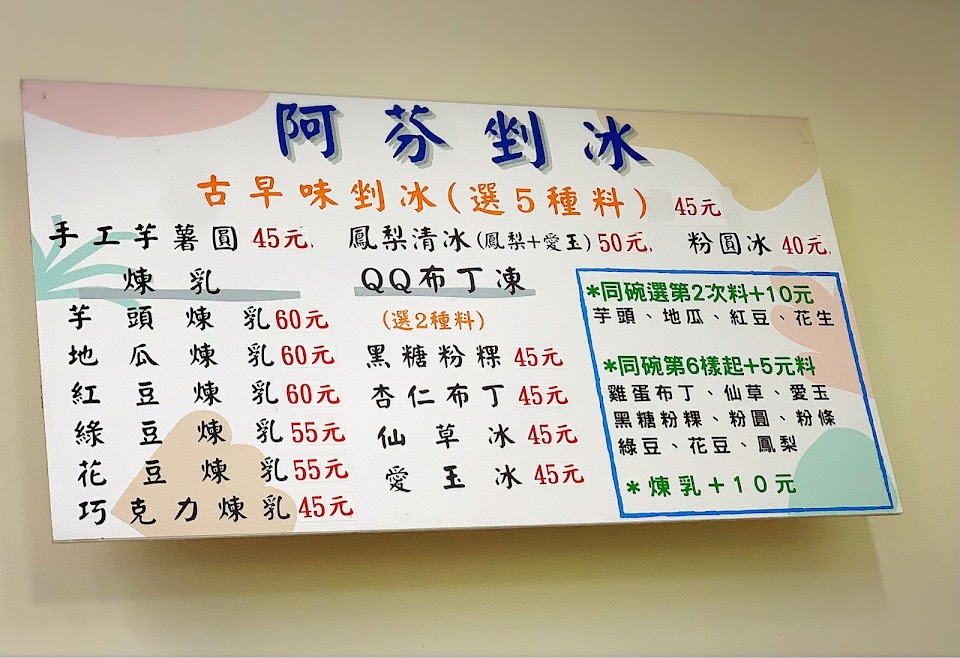 阿芬剉冰
古早味剉冰(選5種料) 45元
手工芋薯圓 45元, 鳳梨清冰(鳳梨+愛玉)50元, 粉圓冰 40元,
煉乳
芋頭煉乳60元
地瓜煉乳60元
紅豆煉乳60元
綠豆煉乳55元
花豆煉乳55元
巧克力煉乳45元
QQ布丁凍
(選2種料)
黑糖粉粿 45元
杏仁布丁 45元
仙草冰 45元
愛玉冰 45元
*同碗選第2次料+10元
芋頭、地瓜、紅豆、花生
*同碗第6樣起+5元料
雞蛋布丁、仙草、愛玉
黑糖粉粿、粉圓、粉條
綠豆、花豆、鳳梨
*煉乳+10元